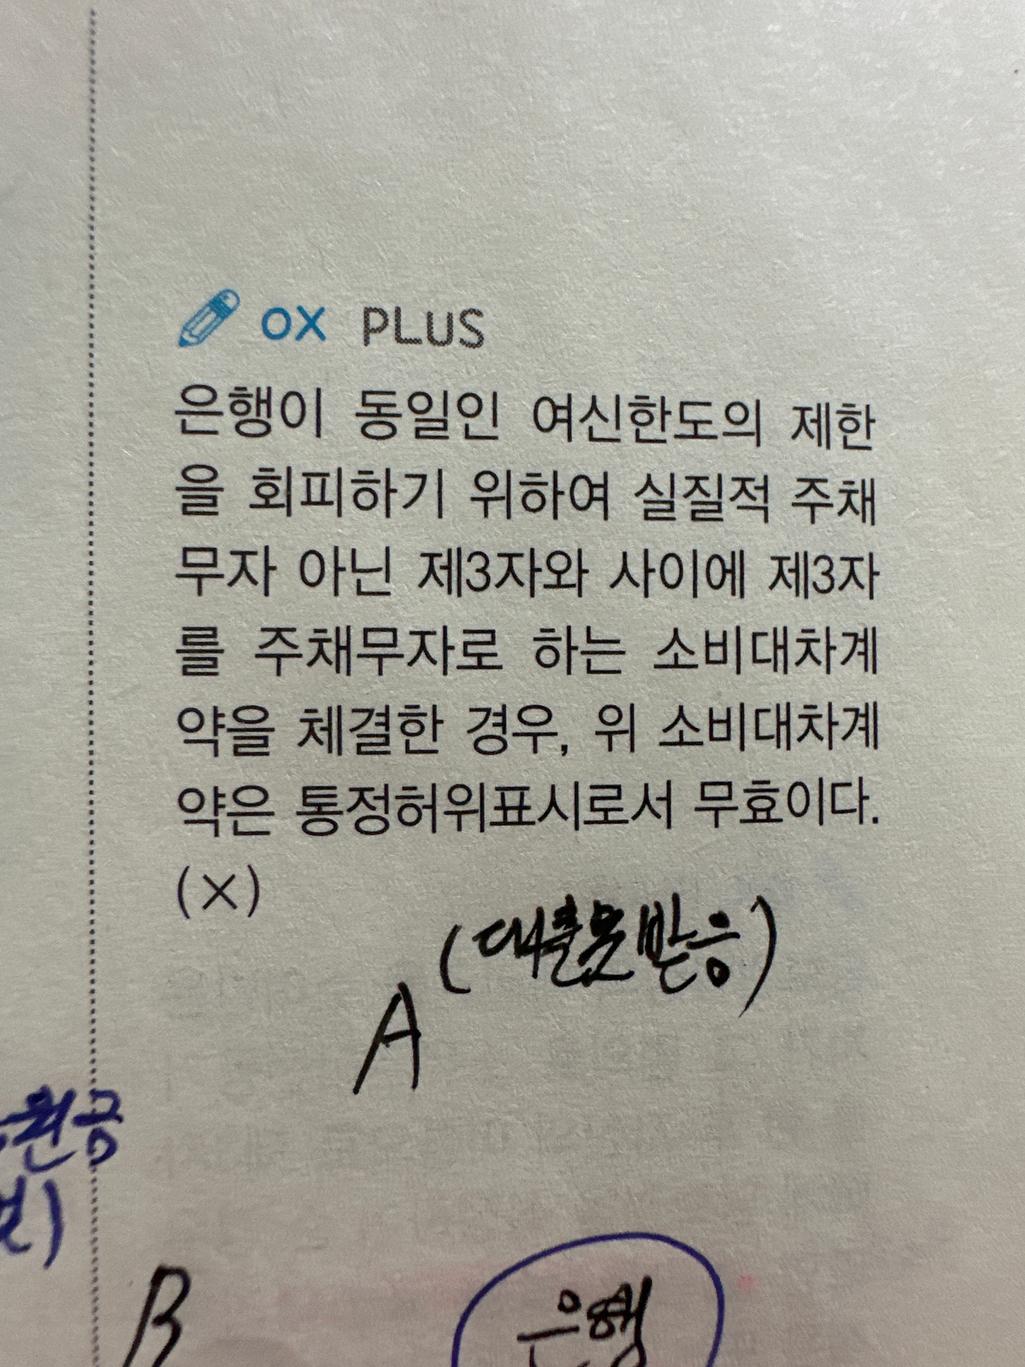 OX PLUS
은행이 동일인 여신한도의 제한
을 회피하기 위하여 실질적 주채
무자 아닌 제3자와 사이에 제3자
를 주채무자로 하는 소비대차계
약을 체결한 경우, 위 소비대차계
약은 통정허위표시로서 무효이다.
(×)
(대출못받응)
A
B
은행